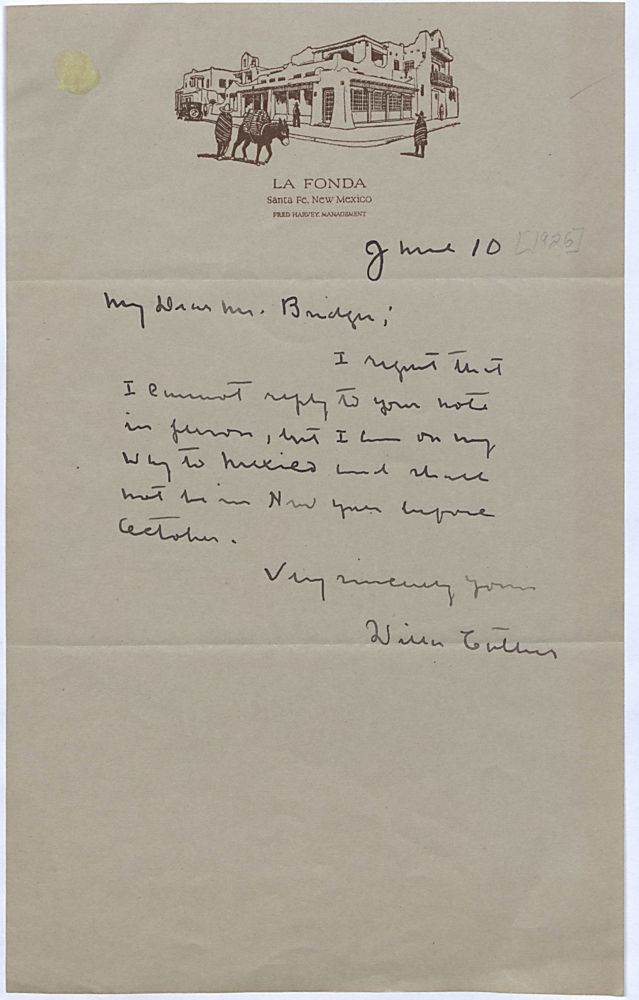 LA FONDA
Santa Fe, New Mexico
FRED HARVEY, MANAGEMENT
June 10 [1926]
My Dear Mr. Bridges;
I regret that
I cannot reply to your note
in person, but I am on my
way to Mexico and shall
not be in New York before
October.
Very sincerely yours
Willa Cather